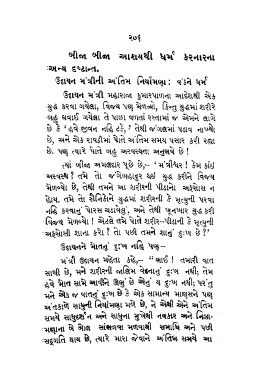 ૨૦૬
બીજા બીજા આશયથી ધર્મ કરનારના
અન્ય દષ્ટાન્ત.
ઉદાયન મંત્રીની અંતિમ નિર્યામણા: વંકને ધર્મ
ઉદાયન મંત્રી મહારાજા કુમારપાળના આદેશથી એક
યુદ્ધ કરવા ગયેલા, વિજય પણ મેળવ્યો, કિન્તુ યુદ્ધમાં શરીરે
બહુ ઘવાઈ ગયેલા તે પાછા વળતાં રસ્તામાં જ એમને લાગે
છે કે ‘હવે જીવન નહિ ટકે,’ તેથી જંગલમાં પડાવ નાખ્યો
છે, અને એક રાવઠીમાં પોતે અંતિમ સમય પસાર કરી રહ્યા
છે. પણ ત્યારે પોતે બહુ અસ્વસ્થતા અનુભવે છે !
ત્યાં બીજા અમલદાર પૂછે છે,– ‘મંત્રીશ્વર ! કેમ કાંઇ
અસ્વસ્થ ? તમે તો જંગબહાદુર થઇ યુદ્ધ કરીને વિજય
મેળવ્યો છે, તેથી તમને આ શરીરની પીડાનો અફસોસ ન
હોય. તમે તો સૈનિકોને યુદ્ધમાં શરીરની કે મૃત્યુની પરવા
નહિ કરવાનું પોરસ ચઢાવેલું, અને તેથી ખૂનખાર યુદ્ધ કરી
વિજય મેળવ્યો ! એટલે તમે પોતે શરીર–પીડાની કે મૃત્યુની
અફસોસી શાના કરો ? તો પછી તમને શાનું દુઃખ છે ?’
ઉદાયનને મોતનું દુઃખ નહિ પણ–
મંત્રી ઉદાયન મહેતા કહે,– “ભાઈ ! તમારી વાત
સાચી છે, મને શરીરની જાલિમ વેદનાનું દુઃખ નથી; તેમ
હવે મોત સામે આવીને ઉભું છે એનું ય દુઃખ નથી; પરંતુ
મને એક જ વાતનું દુઃખ છે કે એક સામાન્ય માણસને પણ
અંતકાળે સાધુની નિર્યામણા મળે છે, ને એથી એને અંતિમ
સમયે સાધુદર્શન અને સાધુના મુખેથી નવકાર અને નિર્યા-
મણાના બે બોલ સાંભળવા મળવાથી સમાધિ અને પછી
સદ્ગતિ થાય છે, ત્યારે મારા જેવાને અંતિમ સમયે આ